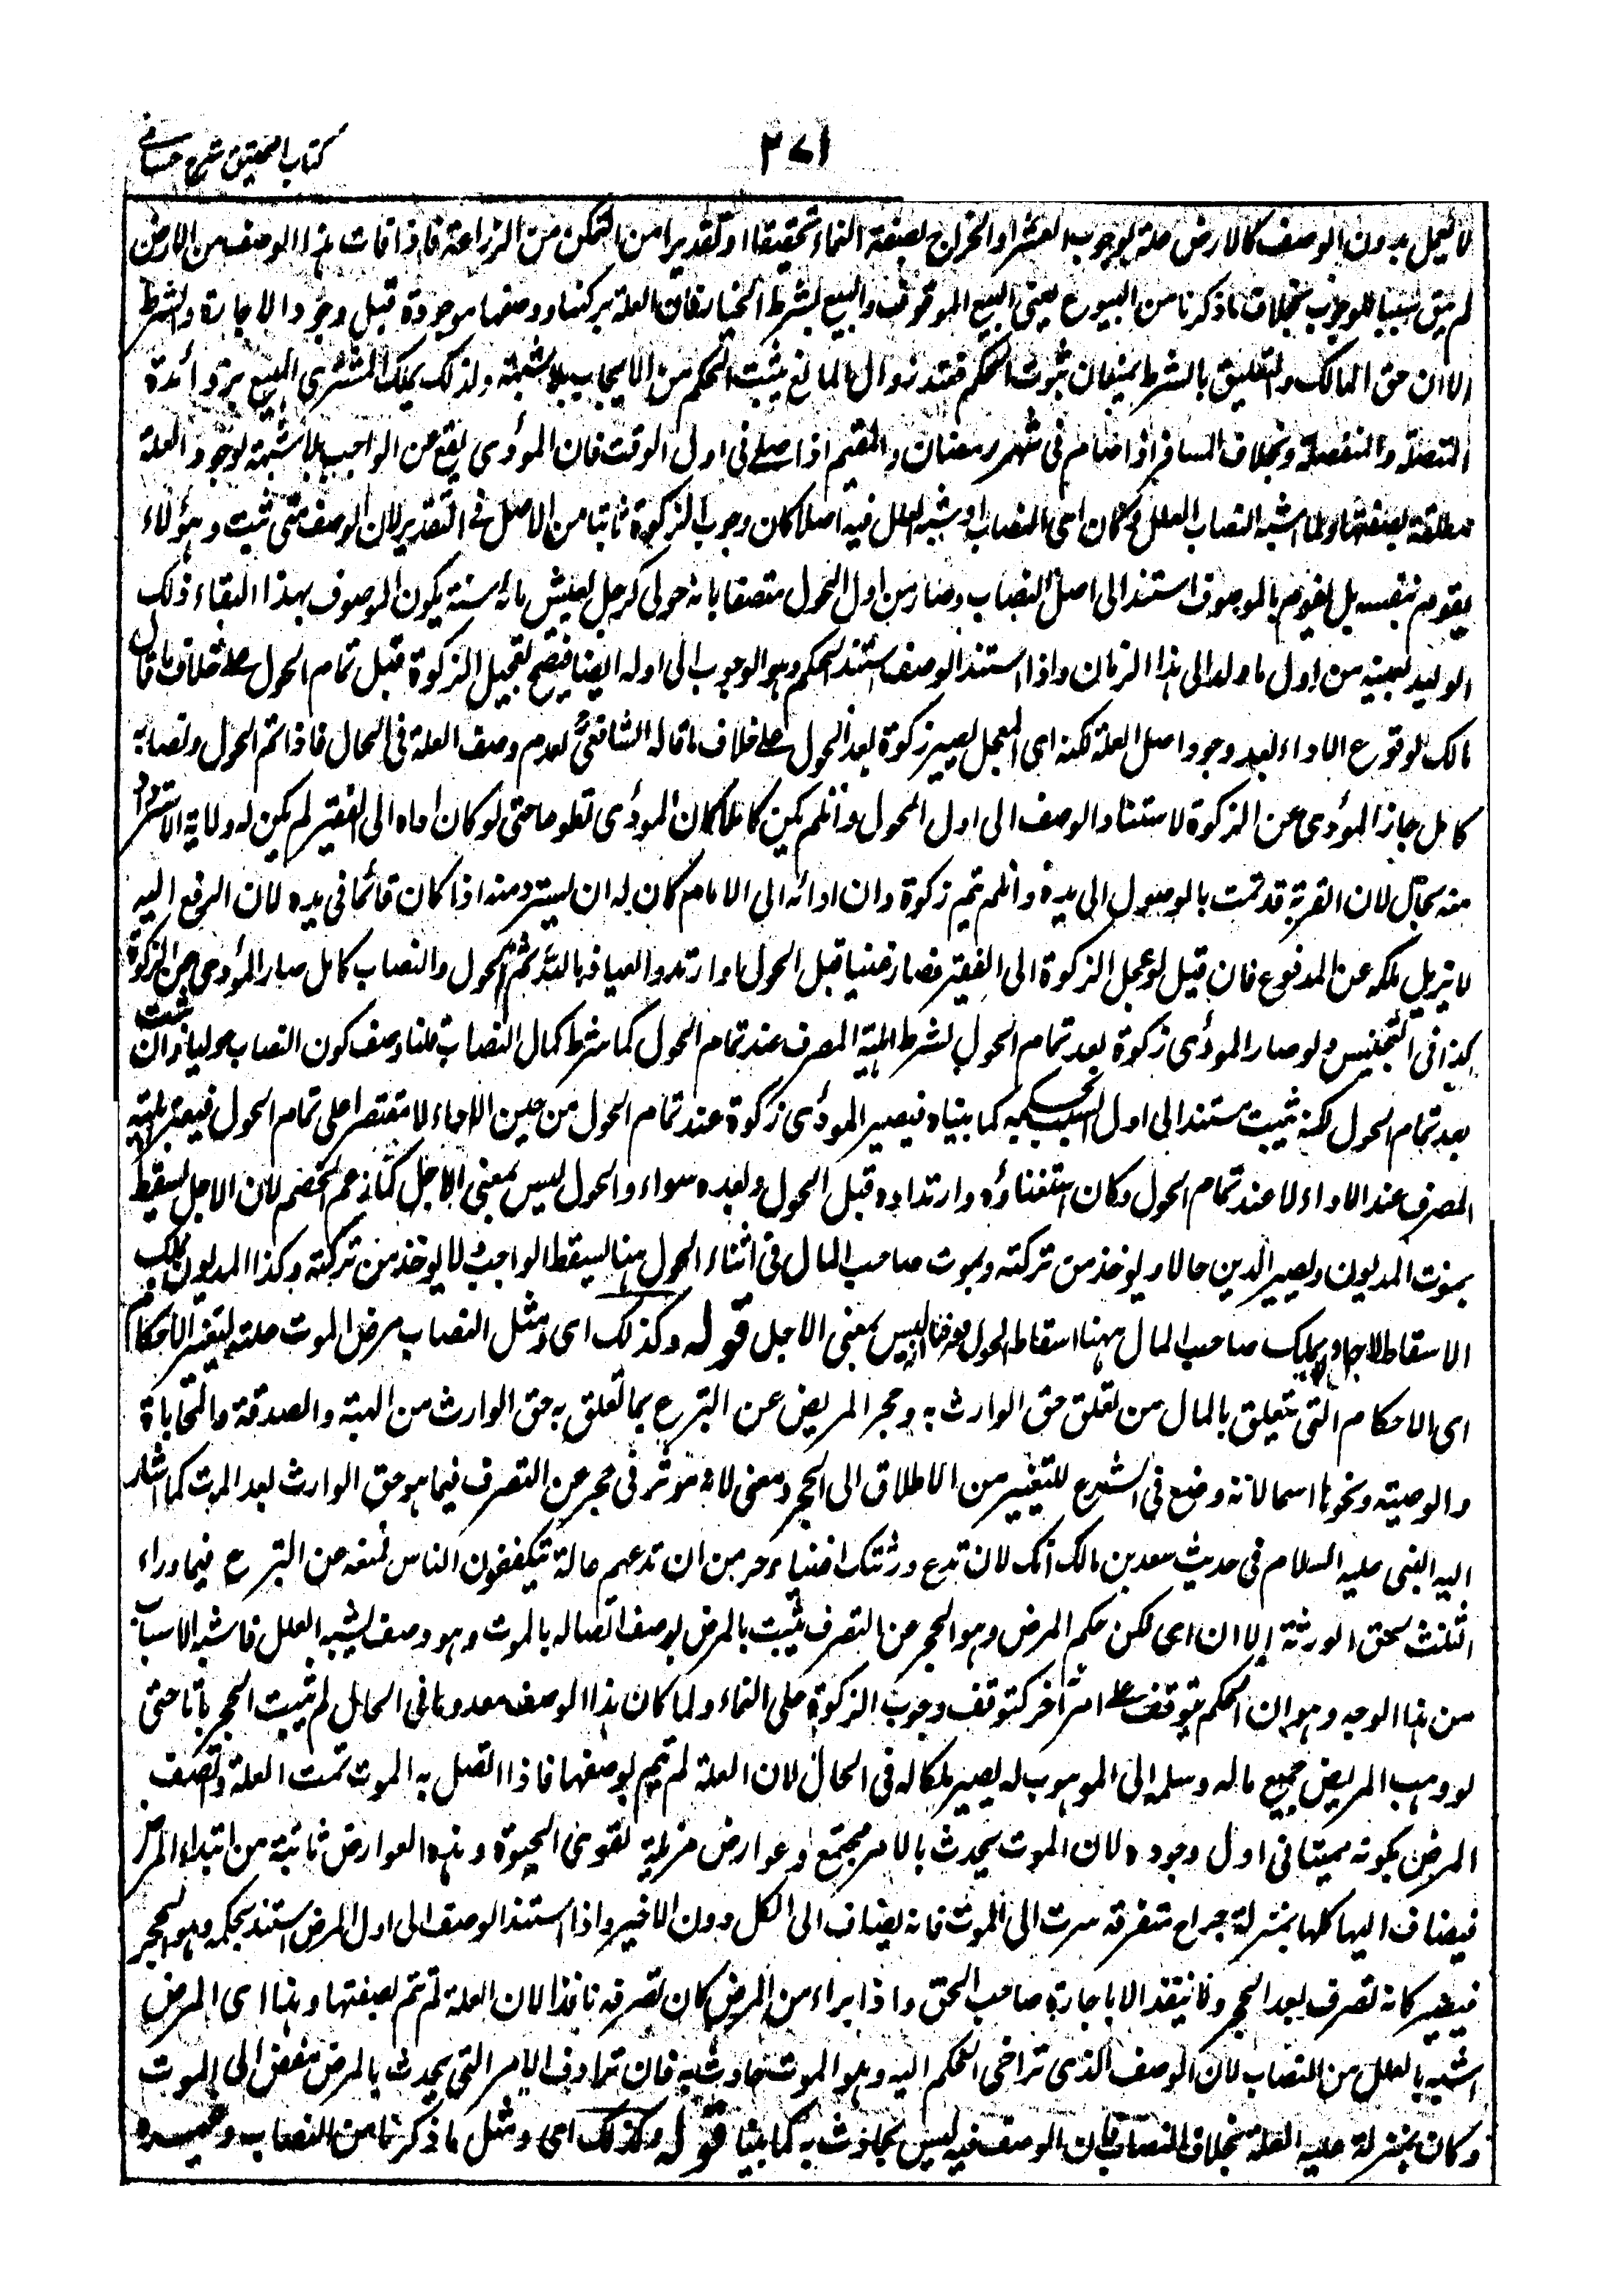 ٢٧١
كتاب التحقيق شرح حسامى
لا تعمل بدون الوصف كالارض علة لوجوب العشر او الخراج بصفة النماء تحقيقا او تقديرا من التمكن من الزراعة فاذا فات هذا الوصف من الارض
لم يبق سببا للوجوب بخلاف ما ذكرنا من البيوع يعنى البيع الموقوف والبيع بشرط الخيار فان العلة بركنها ووصفها موجودة قبل وجود الاجازة والشرط
الا ان حق المالك والتعليق بالشرط يمنعان ثبوت الحكم فعند زوال المانع يثبت الحكم من الايجاب بلا شبهة ولذلك يملك المشترى المبيع بزوائده
المتصلة والمنفصلة وبخلاف المسافر اذا صام فى شهر رمضان والمقيم اذا صلى فى اول الوقت فان المؤدى يقع عن الواجب بلا شبهة لوجود العلة
مطلقة بصفتها ولما اشبه النصاب العلل وكان اى النصاب او شبه العلل فيه اصلا كان وجوب الزكوة ثابتا من الاصل فى التقدير لان الوصف متى ثبت وهو لا
يقوم بنفسه بل يقوم بالموصوف استند الى اصل النصاب وصار من اول الحول متصفا بانه حولى كرجل يعيش مائة سنة يكون الموصوف بهذا البقاء ذلك
الوليد بعينه من اول ما ولد الى هذا الزمان واذا استند الوصف استند الحكم وهو الوجوب الى اوله ايضا فيصح تعجيل الزكوة قبل تمام الحول على خلاف ما قال
مالك لوقوع الاداء بعد وجود اصل العلة لكنه اى المعجل يصير زكوة بعد الحول على خلاف ما قاله الشافعى لعدم وصف العلة فى الحال فاذا تم الحول ونصابه
كامل جاز المؤدى عن الزكوة لاستناد الوصف الى اول الحول وان لم يكن كاملا كان المؤدى تطوعا حتى لو كان اداه الى الفقير لم يكن له ولاية الاسترداد
منه بحال لان القربة قد تمت بالوصول الى يده وان لم يتم زكوة وان اداه الى الامام كان له ان يسترد منه اذا كان قائما فى يده لان الدفع اليه
لا يزيل ملكه عن المدفوع فان قيل لو عجل الزكوة الى الفقير فصار غنيا قبل الحول او ارتد والعياذ بالله ثم تم الحول والنصاب كامل صار المؤدى عن الزكوة
كذا فى التجنيس ولو صار المؤدى زكوة بعد تمام الحول لشرط اهلية المصرف عند تمام الحول كما شرط كمال النصاب قلنا وصف كون النصاب حوليا وان ثبت
بعد تمام الحول لكنه يثبت مستندا الى اول السبب بحكمه كما بيناه فيصير المؤدى زكوة عند تمام الحول من حين الاداء لا مقتصرا على تمام الحول فيعتبر اهلية
المصرف عند الاداء لا عند تمام الحول وكان استغناؤه وارتداده قبل الحول وبعده سواء والحول ليس بمعنى الاجل كما زعم الخصم لان الاجل يسقط
بموت المديون ويصير الدين حالا ويؤخذ من تركته وبموت صاحب المال فى اثناء الحول هنا يسقط الواجب لا يؤخذ من تركته وكذا المديون يملك
الاسقاط للاجل ولا يملك صاحب المال ههنا اسقاط الحول فعرفنا انه ليس بمعنى الاجل قوله وكذلك اى ومثل النصاب مرض الموت علة لتغير الاحكام
اى الاحكام التى يتعلق بالمال من تعلق حق الوارث به وحجر المريض عن التبرع بما تعلق به حق الوارث من الهبة والصدقة والمحاباة
والوصية ونحوها اسما لانه وضع فى الشرع للتغيير من الاطلاق الى الحجر ومعنى لانه مؤثر فى حجر عن التصرف فيما هو حق الوارث بعد الموت كما اشار
اليه النبى عليه السلام فى حديث سعد بن مالك انك لان تدع ورثتك اغنياء خير من ان تدعهم عالة يتكففون الناس فمنعه عن التبرع فيما وراء
الثلث لحق الورثة الا ان اى لكن حكم المرض وهو الحجر عن التصرف يثبت بالمرض بوصف اتصاله بالموت وهو وصف يشبه العلل فاشبه الاسباب
من هذا الوجه وهو ان الحكم يتوقف على امر آخر كتوقف وجوب الزكوة على النماء ولما كان هذا الوصف معدوما فى الحال لم يثبت الحجر باتا حتى
لو وهب المريض جميع ماله وسلمه الى الموهوب له يصير ملكا له فى الحال لان العلة لم تتم بوصفها فاذا اتصل به الموت تمت العلة واتصف
المرض بكونه مميتا فى اول وجوده لان الموت يحدث بآلام مجتمع وعوارض مزيلة لقوى الحيوة وهذه العوارض ثابتة من ابتداء المرض
فيضاف اليها كلها بمنزلة جراح متفرقة سرت الى الموت فانه يضاف الى الكل دون الاخير واذا استند الوصف الى اول المرض استند بحكمه وهو الحجر
فيصير كانه تصرف بعد الحجر ولا ينفذ الا باجازة صاحب الحق واذا براء من المرض كان تصرفه نافذا لان العلة لم تتم بصفتها وهذا اى المرض
اشبه بالعلل من النصاب لان الوصف الذى تراخى الحكم اليه وهو الموت حادث به فان ترادف الآلام التى يحدث بالمرض مفض الى الموت
وكان بمنزلة علة العلة بخلاف النصاب فان الوصف فيه ليس بحادث به كما بينا قوله وكذلك اى ومثل ما ذكرنا من النصاب وغيره